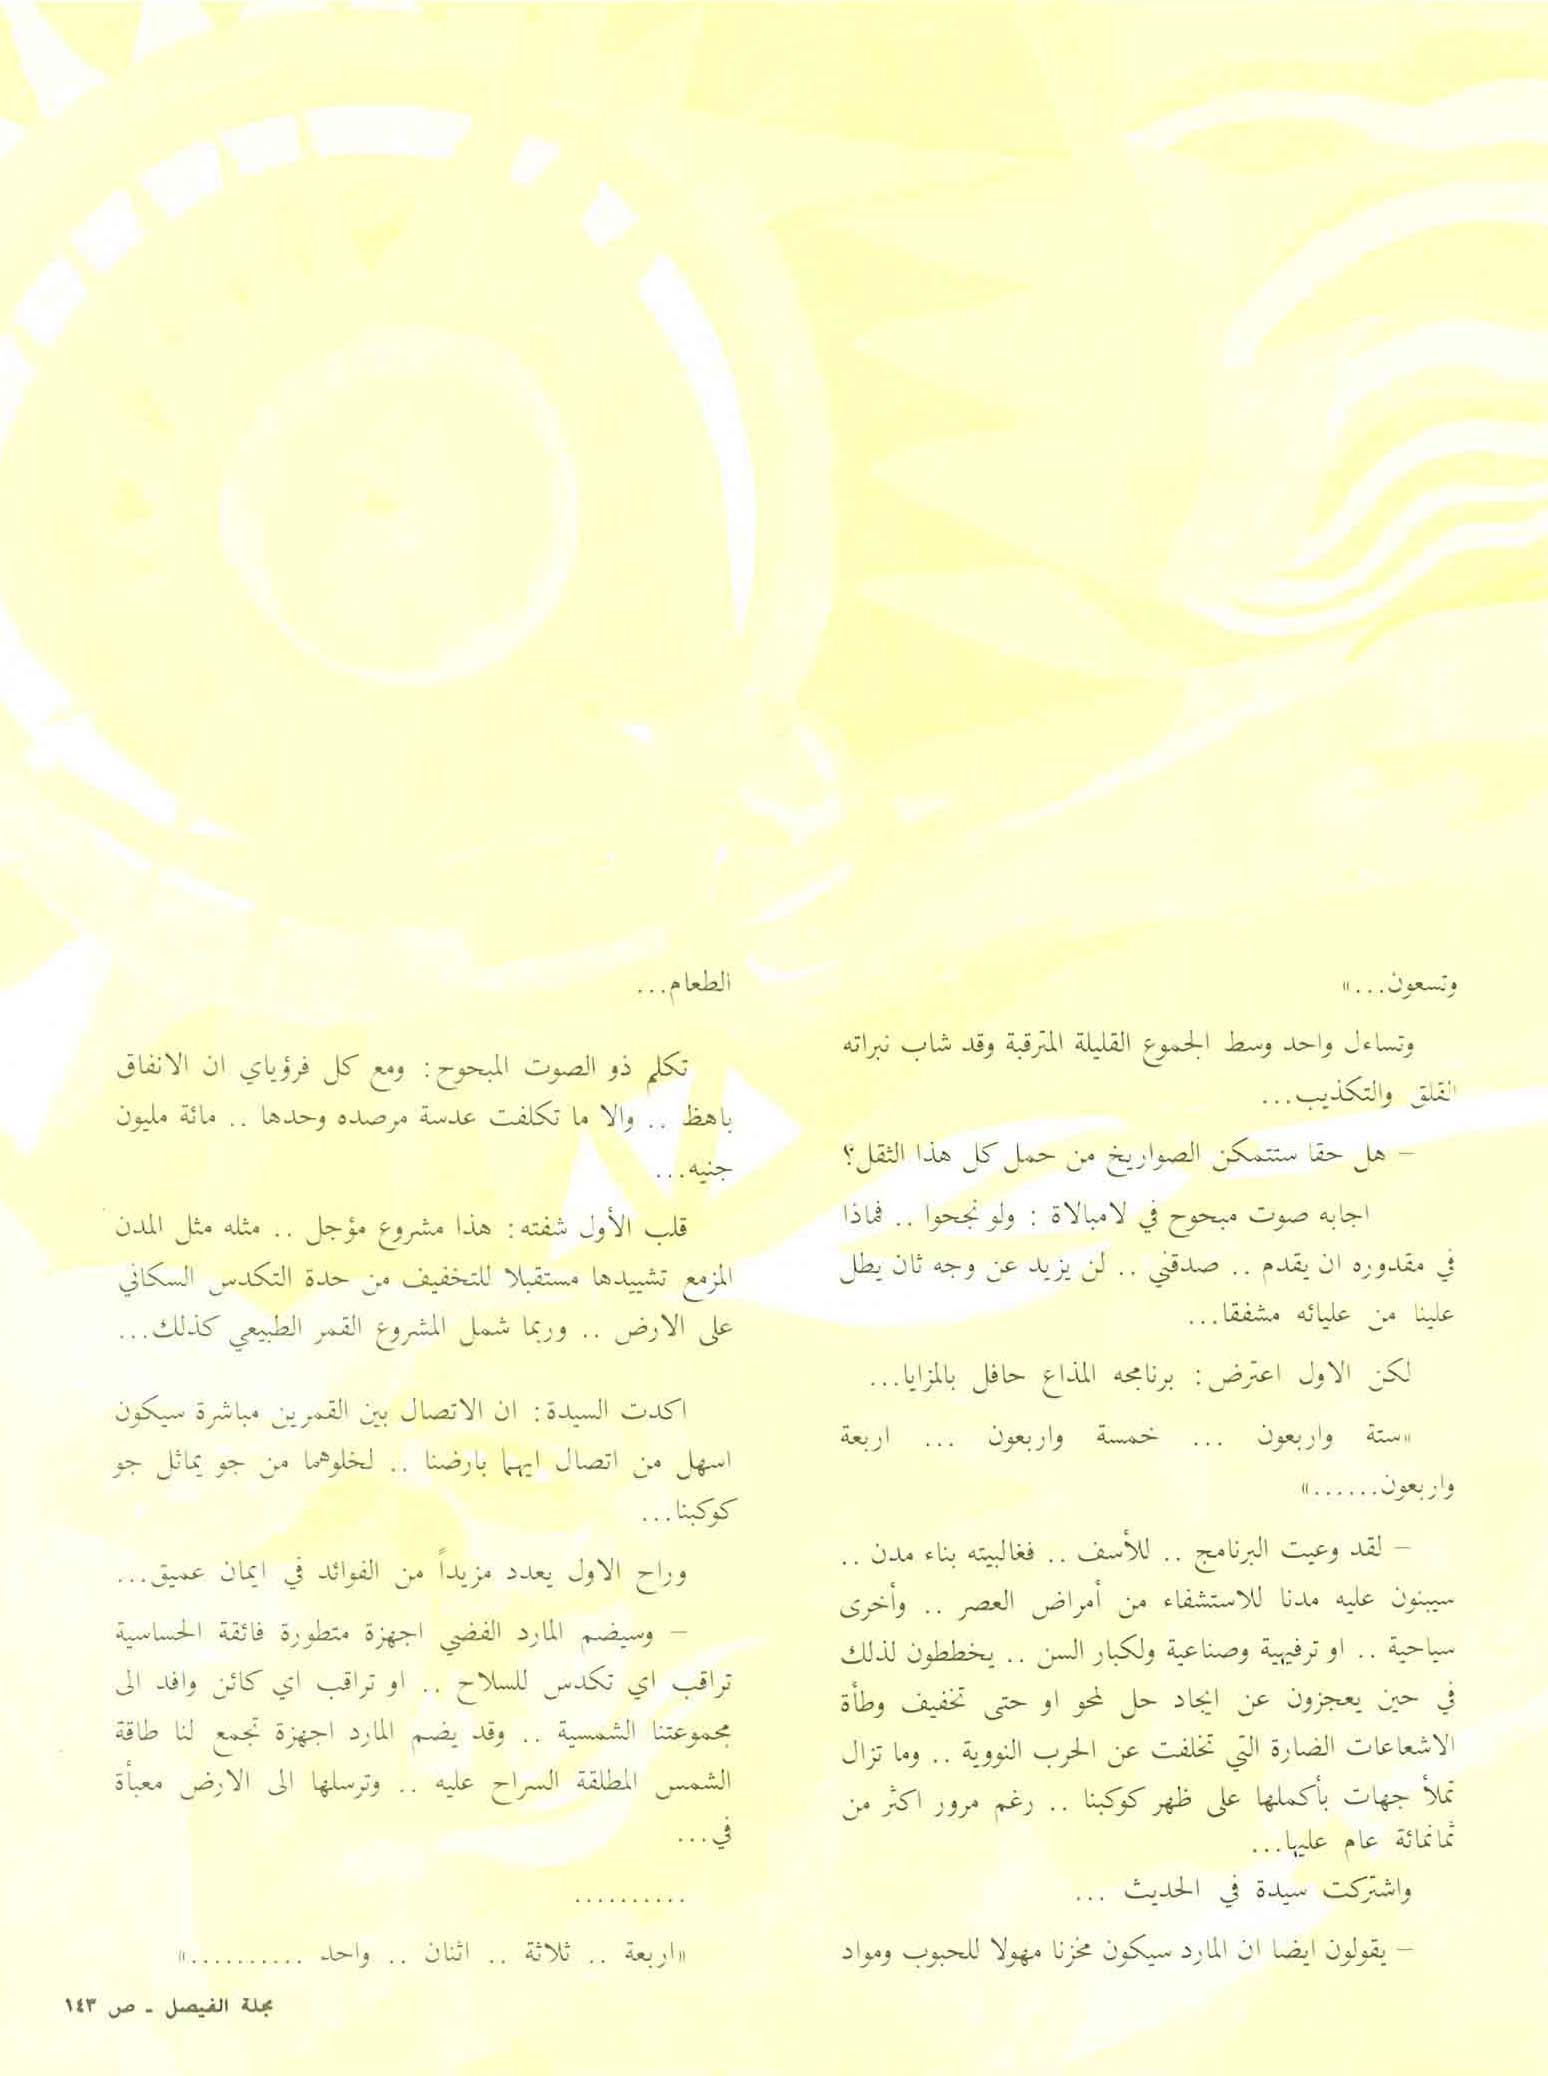 وتسعون...»
وتساءل واحد وسط الجموع القليلة المترقبة وقد شاب نبراته
القلق والتكذيب...
– هل حقا ستتمكن الصواريخ من حمل كل هذا الثقل؟
اجابه صوت مبحوح في لامبالاة : ولو نجحوا .. فماذا
في مقدوره ان يقدم .. صدقني .. لن يزيد عن وجه ثان يطل
علينا من عليائه مشفقا...
لكن الاول اعترض: برنامجه المذاع حافل بالمزايا...
«ستة واربعون ... خمسة واربعون ... اربعة
واربعون......»
– لقد وعيت البرنامج .. للأسف .. فغالبيته بناء مدن ..
سيبنون عليه مدنا للاستشفاء من أمراض العصر .. وأخرى
سياحية .. او ترفيهية وصناعية ولكبار السن .. يخططون لذلك
في حين يعجزون عن ايجاد حل لمحو او حتى تخفيف وطأة
الاشعاعات الضارة التي تخلفت عن الحرب النووية .. وما تزال
تملأ جهات بأكملها على ظهر كوكبنا .. رغم مرور اكثر من
ثمانمائة عام عليها...
واشتركت سيدة في الحديث ...
– يقولون ايضا ان المارد سيكون مخزنا مهولا للحبوب ومواد
الطعام...
تكلم ذو الصوت المبحوح: ومع كل فرؤياي ان الانفاق
باهظ .. والا ما تكلفت عدسة مرصده وحدها .. مائة مليون
جنيه...
قلب الأول شفته: هذا مشروع مؤجل .. مثله مثل المدن
المزمع تشييدها مستقبلا للتخفيف من حدة التكدس السكاني
على الارض .. وربما شمل المشروع القمر الطبيعي كذلك...
اكدت السيدة: ان الاتصال بين القمرين مباشرة سيكون
اسهل من اتصال ايهما بارضنا .. لخلوهما من جو يماثل جو
كوكبنا...
وراح الاول يعدد مزيداً من الفوائد في ايمان عميق...
– وسيضم المارد الفضي اجهزة متطورة فائقة الحساسية
تراقب اي تكدس للسلاح .. او تراقب اي كائن وافد الى
مجموعتنا الشمسية .. وقد يضم المارد اجهزة تجمع لنا طاقة
الشمس المطلقة السراح عليه .. وترسلها الى الارض معبأة
في...
..........
«اربعة .. ثلاثة .. اثنان .. واحد ..........»
مجلة الفيصل ـ ص ١٤٣